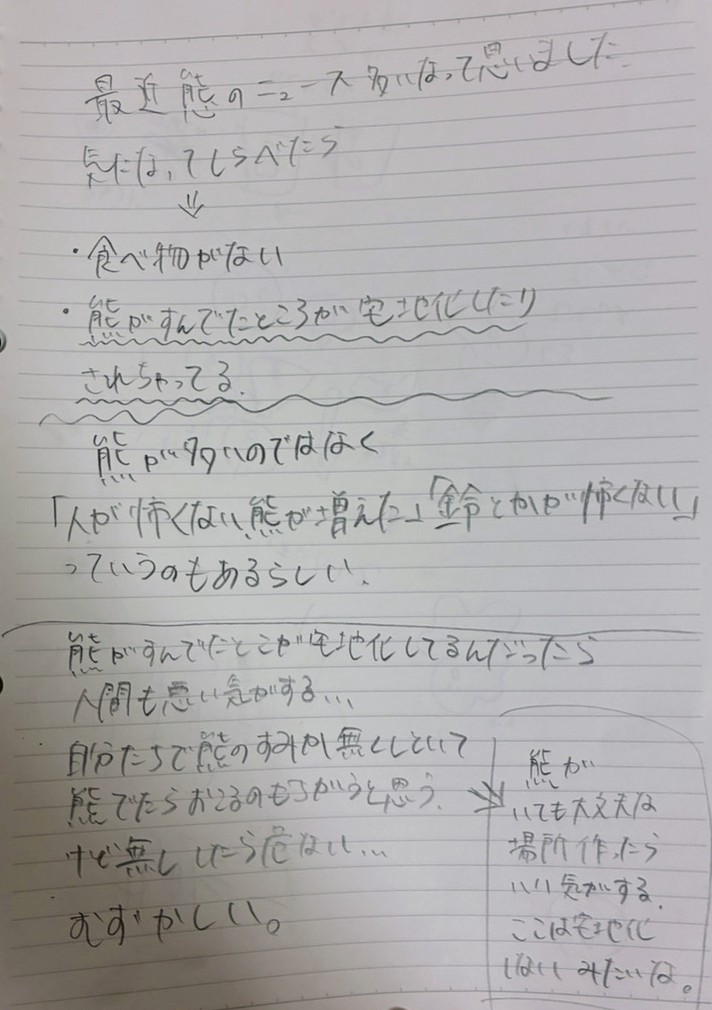 最近熊のニュース多いなって思いました
気になってしらべたら
⇓
・食べ物がない
・熊がすんでたところが宅地化したり
されちゃってる.
熊が多いのではなく
「人が怖くない熊が増えた」「鈴とかが怖くない」
っていうのもあるらしい.
熊がすんでたとこが宅地化してるんだったら
人間も悪い気がする...
自分たちで熊のすみか無くしといて
熊でたらおこるのもちがうと思う.
けど無視したら危ない...
むずかしい。
熊が
いても大丈夫な
場所作ったら
いい気がする.
ここは宅地化
しないみたいな。